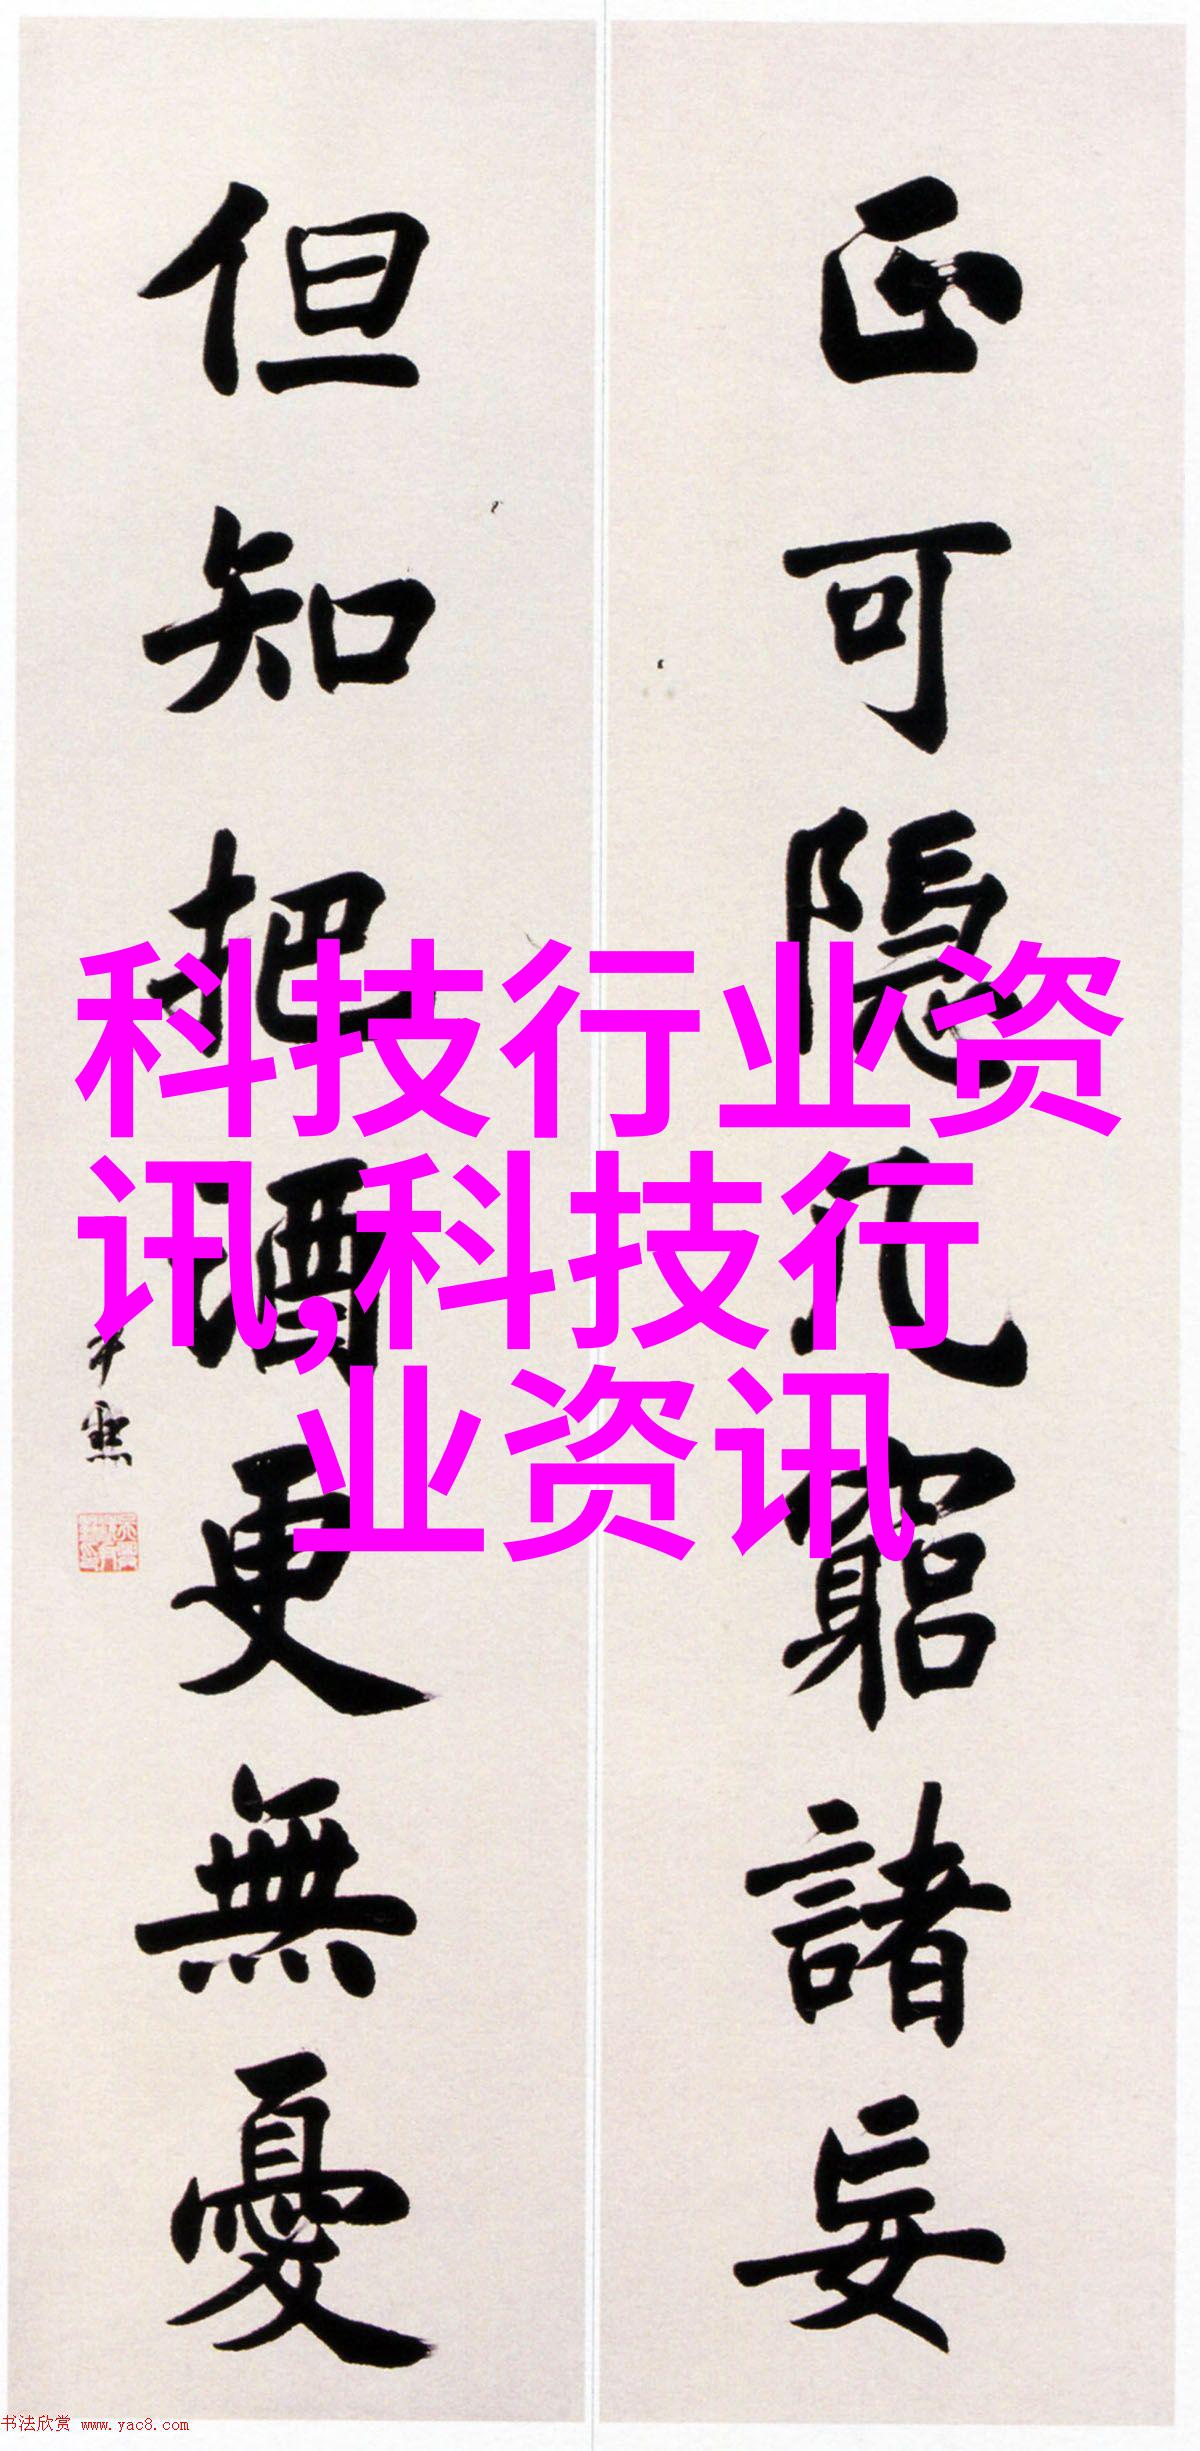 正可隱几窮諸妄
但知把酒更無憂
尹默
科技行业资
讯,科技行
业资讯
书法欣赏 www.yac8.com